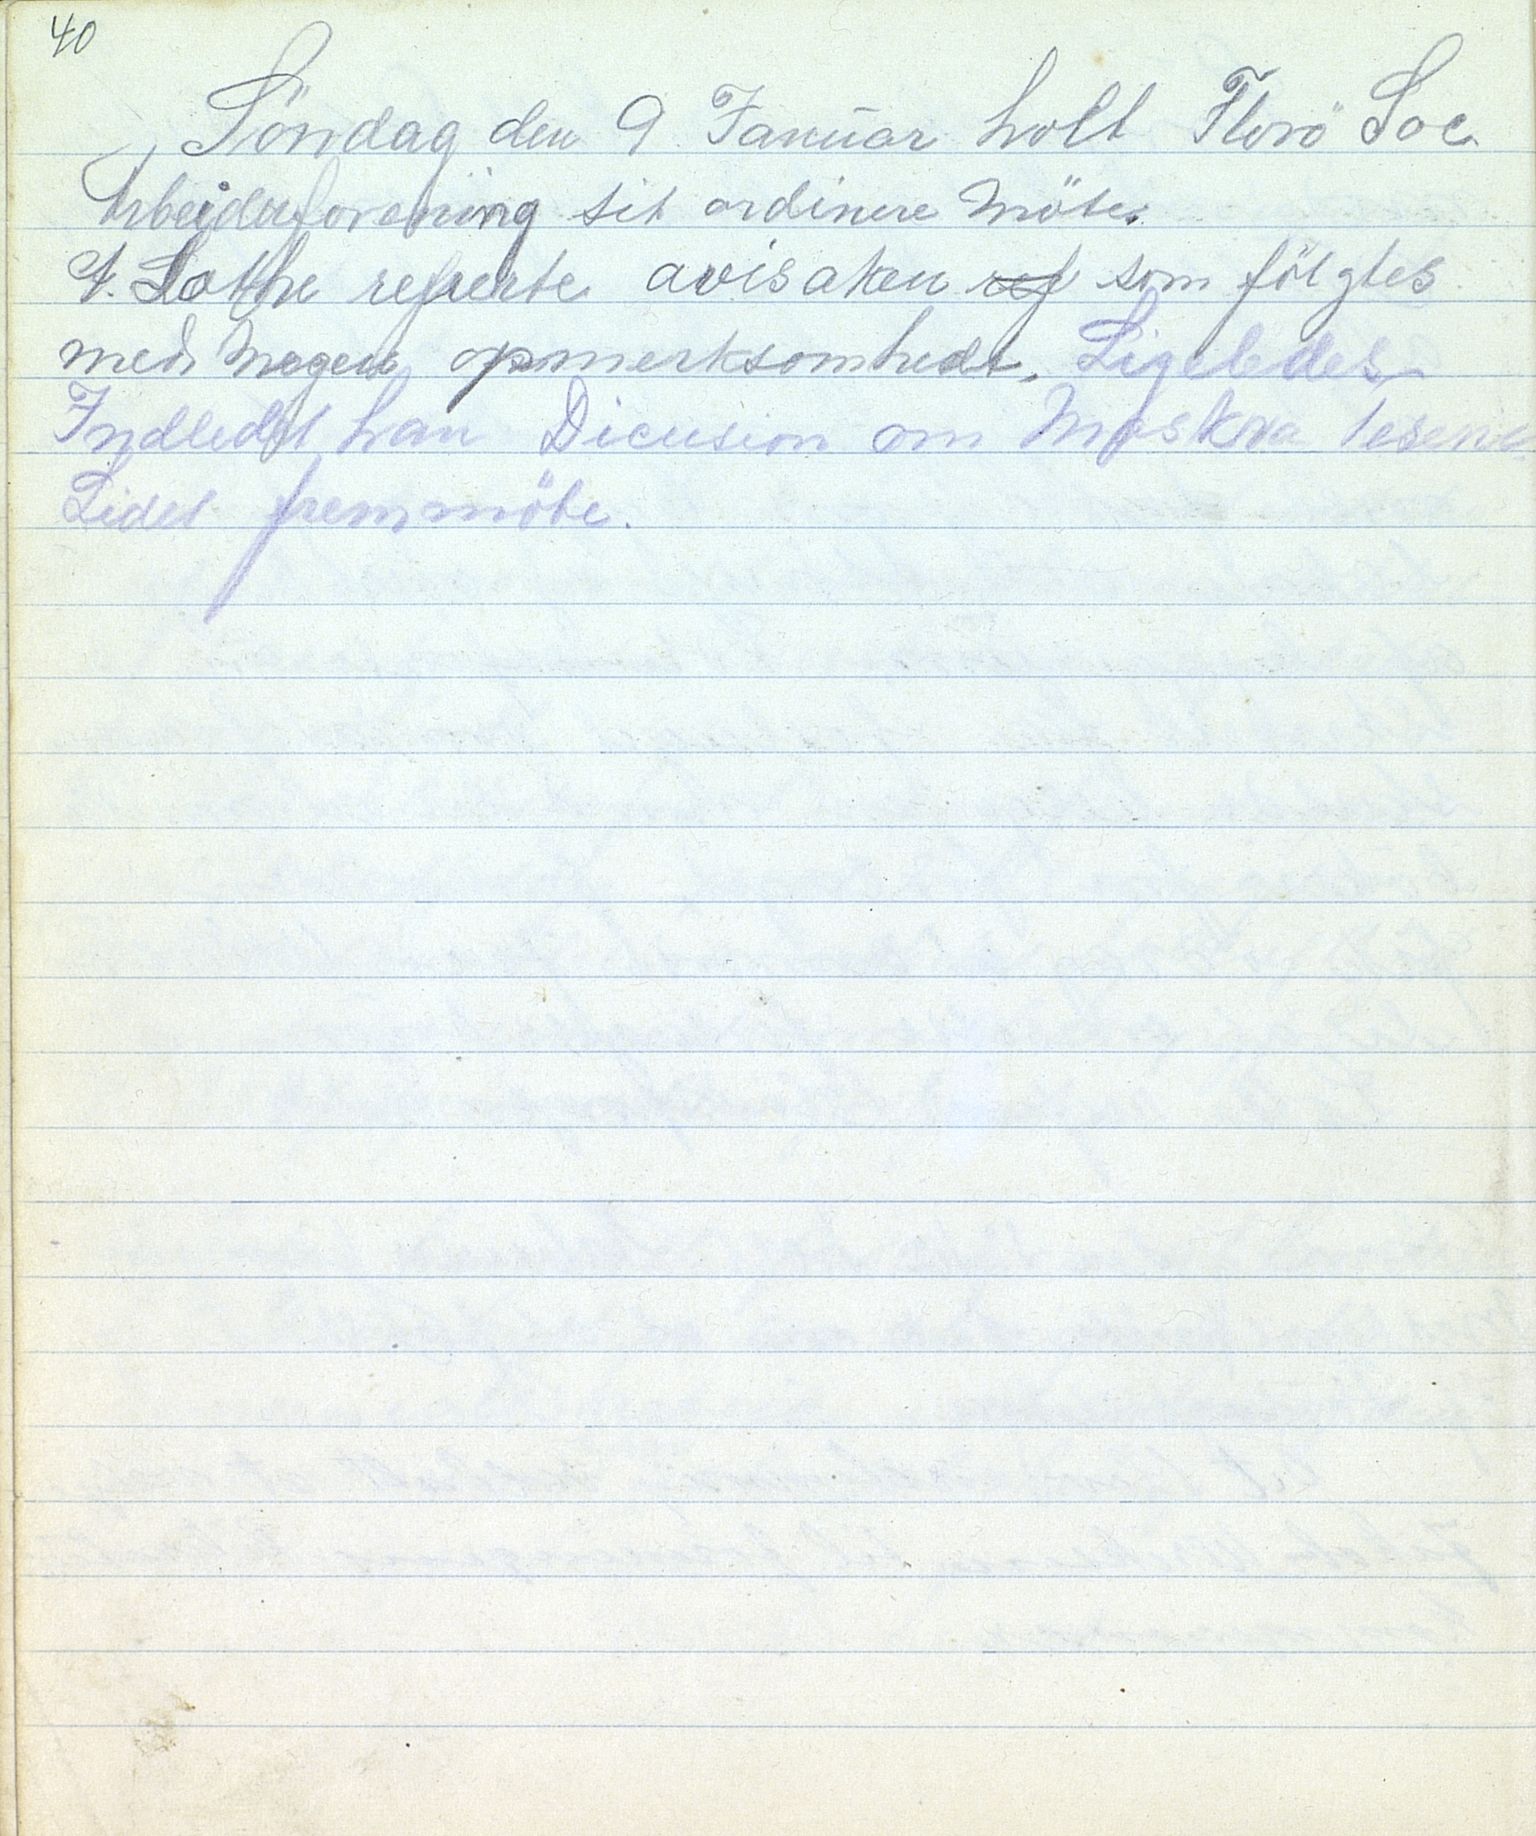 40
Söndag den 9 Januar holt Florö Soc.
Arbeiderforening sit ordinere Möte.
A. Lothe referte avisaken ref som fölgtes
med Megen opmerksomhedt. Ligeledes
Indledet han Dicusion om Moskva teserne.
Lidet fremmöte.